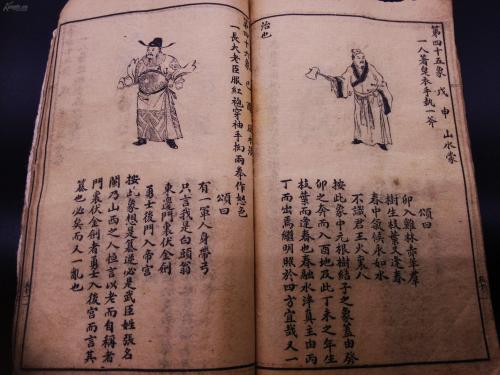 治也
第四十五象 戊申 山水蒙
一人著皂衣手執一斧
頌曰
卯入雞林亦華群
樹生枝葉又逢春
春中氣候永如水
不識君王火東人
按此象中元根樹結子之象蓋由癸
卯之奔而入酉地及此丁未之年生
枝葉而逢春也春融水泮真主由丙
丁而出焉繼明照於四方宜哉又一
第四十六象
一長大老臣服紅袍穿袖手掬兩拳作怒色
頌曰
有一軍人身帶弓
只言我是白頭翁
東邊門裏伏金劍
勇士後門入帝宮
按此象想是篡逆必是武臣姓張名
蘭乃山西之人位言以老而自稱者
門東伏金劍者勇士入後宮而言其
篡也必矣而人一亂也